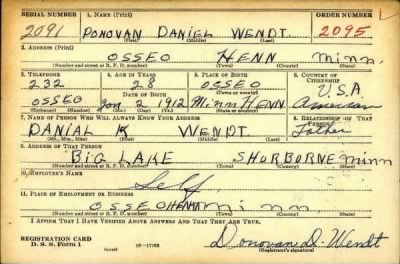 SERIAL NUMBER 1. NAME (Print) ORDER NUMBER
2091 DONOVAN DANIEL WENDT 2095
(First) (Middle) (Last)
2. ADDRESS (Print)
OSSEO HENN Minn.
(Number and street or R. F. D. number) (Town) (County) (State)
3. TELEPHONE 4. AGE IN YEARS 5. PLACE OF BIRTH 6. COUNTRY OF CITIZENSHIP
232 28 OSSEO U.S.A.
DATE OF BIRTH
OSSEO Jan 2 1912 Minn HENN American
(Exchange) (Number) (Mo.) (Day) (Yr.) (Town or county) (State or country)
7. NAME OF PERSON WHO WILL ALWAYS KNOW YOUR ADDRESS 8. RELATIONSHIP OF THAT PERSON
DANIAL K WENDT Father
(Mr., Mrs., Miss) (First) (Middle) (Last)
9. ADDRESS OF THAT PERSON
BIG LAKE SHURBORNE minn
(Number and street or R. F. D. number) (Town) (County) (State)
10. EMPLOYER'S NAME
Self
11. PLACE OF EMPLOYMENT OR BUSINESS
OSSEO HENN minn
(Number and street or R. F. D. number) (Town) (County) (State)
I AFFIRM THAT I HAVE VERIFIED ABOVE ANSWERS AND THAT THEY ARE TRUE.
REGISTRATION CARD
D. S. S. Form 1 (over) 16—17105 Donovan D. Wendt
(Registrant's signature)